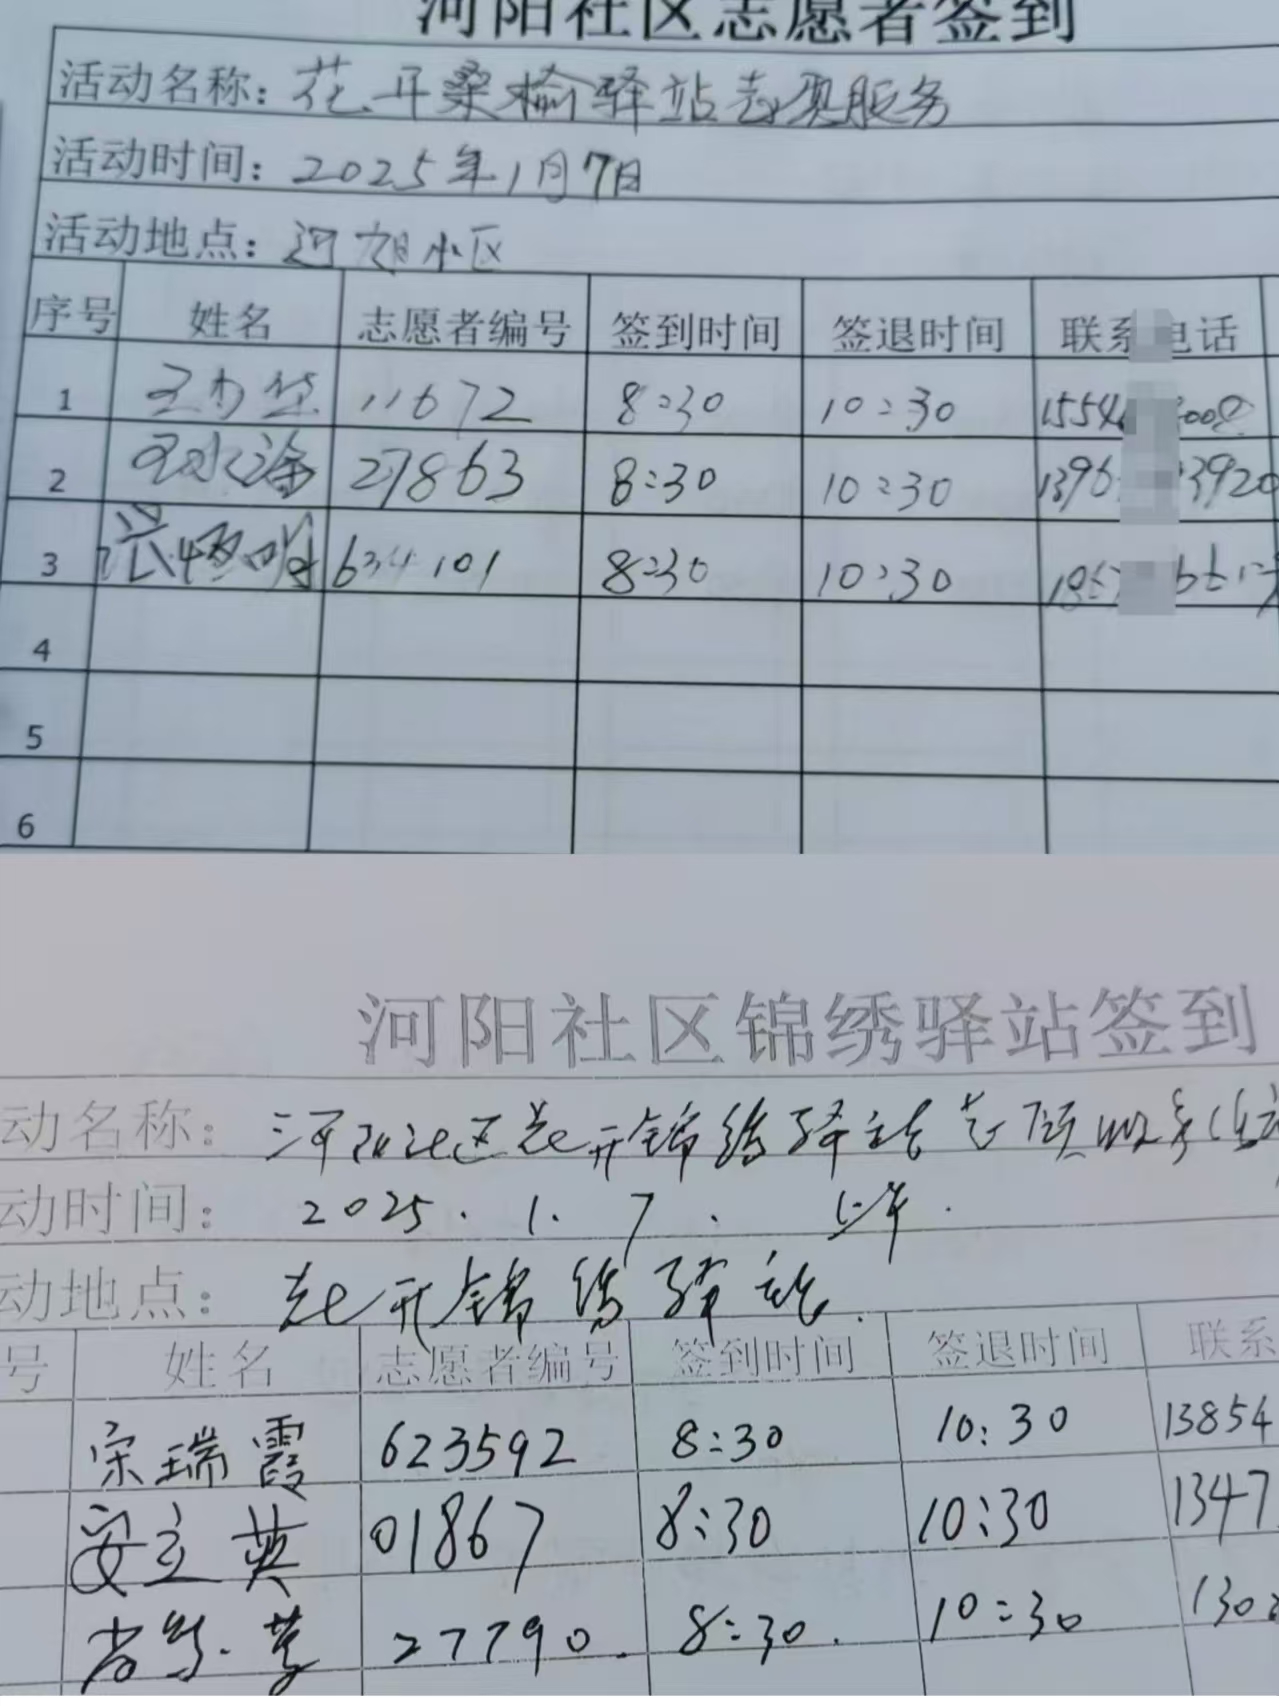 河阳社区志愿者签到
活动名称：花开桑榆驿站志愿服务
活动时间：2025年1月7日
活动地点：河阳小区
序号 姓名 志愿者编号 签到时间 签退时间 联系电话
1 11672 8:30 10:30
2 27863 8:30 10:30
3 634101 8:30 10:30
4
5
6
河阳社区锦绣驿站签到
动名称：河阳社区花开锦绣驿站志愿服务
动时间：2025.1.7.上午.
动地点：花开锦绣驿站.
号 姓名 志愿者编号 签到时间 签退时间 联系
宋瑞霞 623592 8:30 10:30 13854
安立英 01867 8:30 10:30 1347
27790. 8:30. 10:30 130